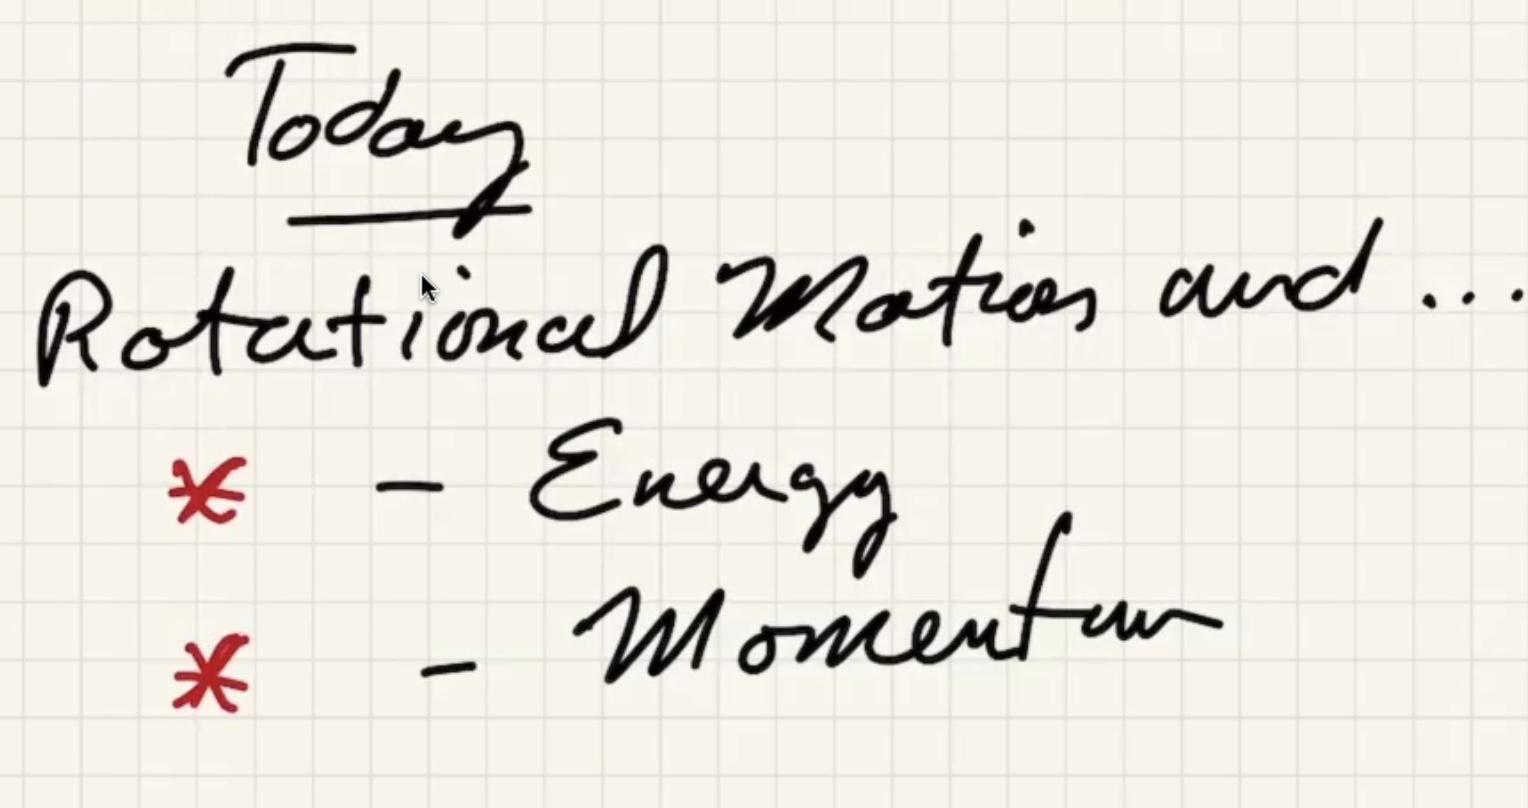 Today
Rotational Motion and ...
* - Energy
* - Momentum